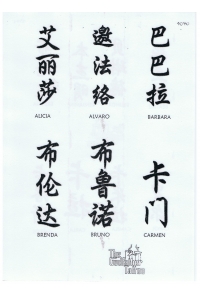 艾丽莎
ALICIA
邀法络
ALVARO
巴巴拉
BARBARA
布伦达
BRENDA
布鲁诺
BRUNO
卡门
CARMEN
The
Tattoo